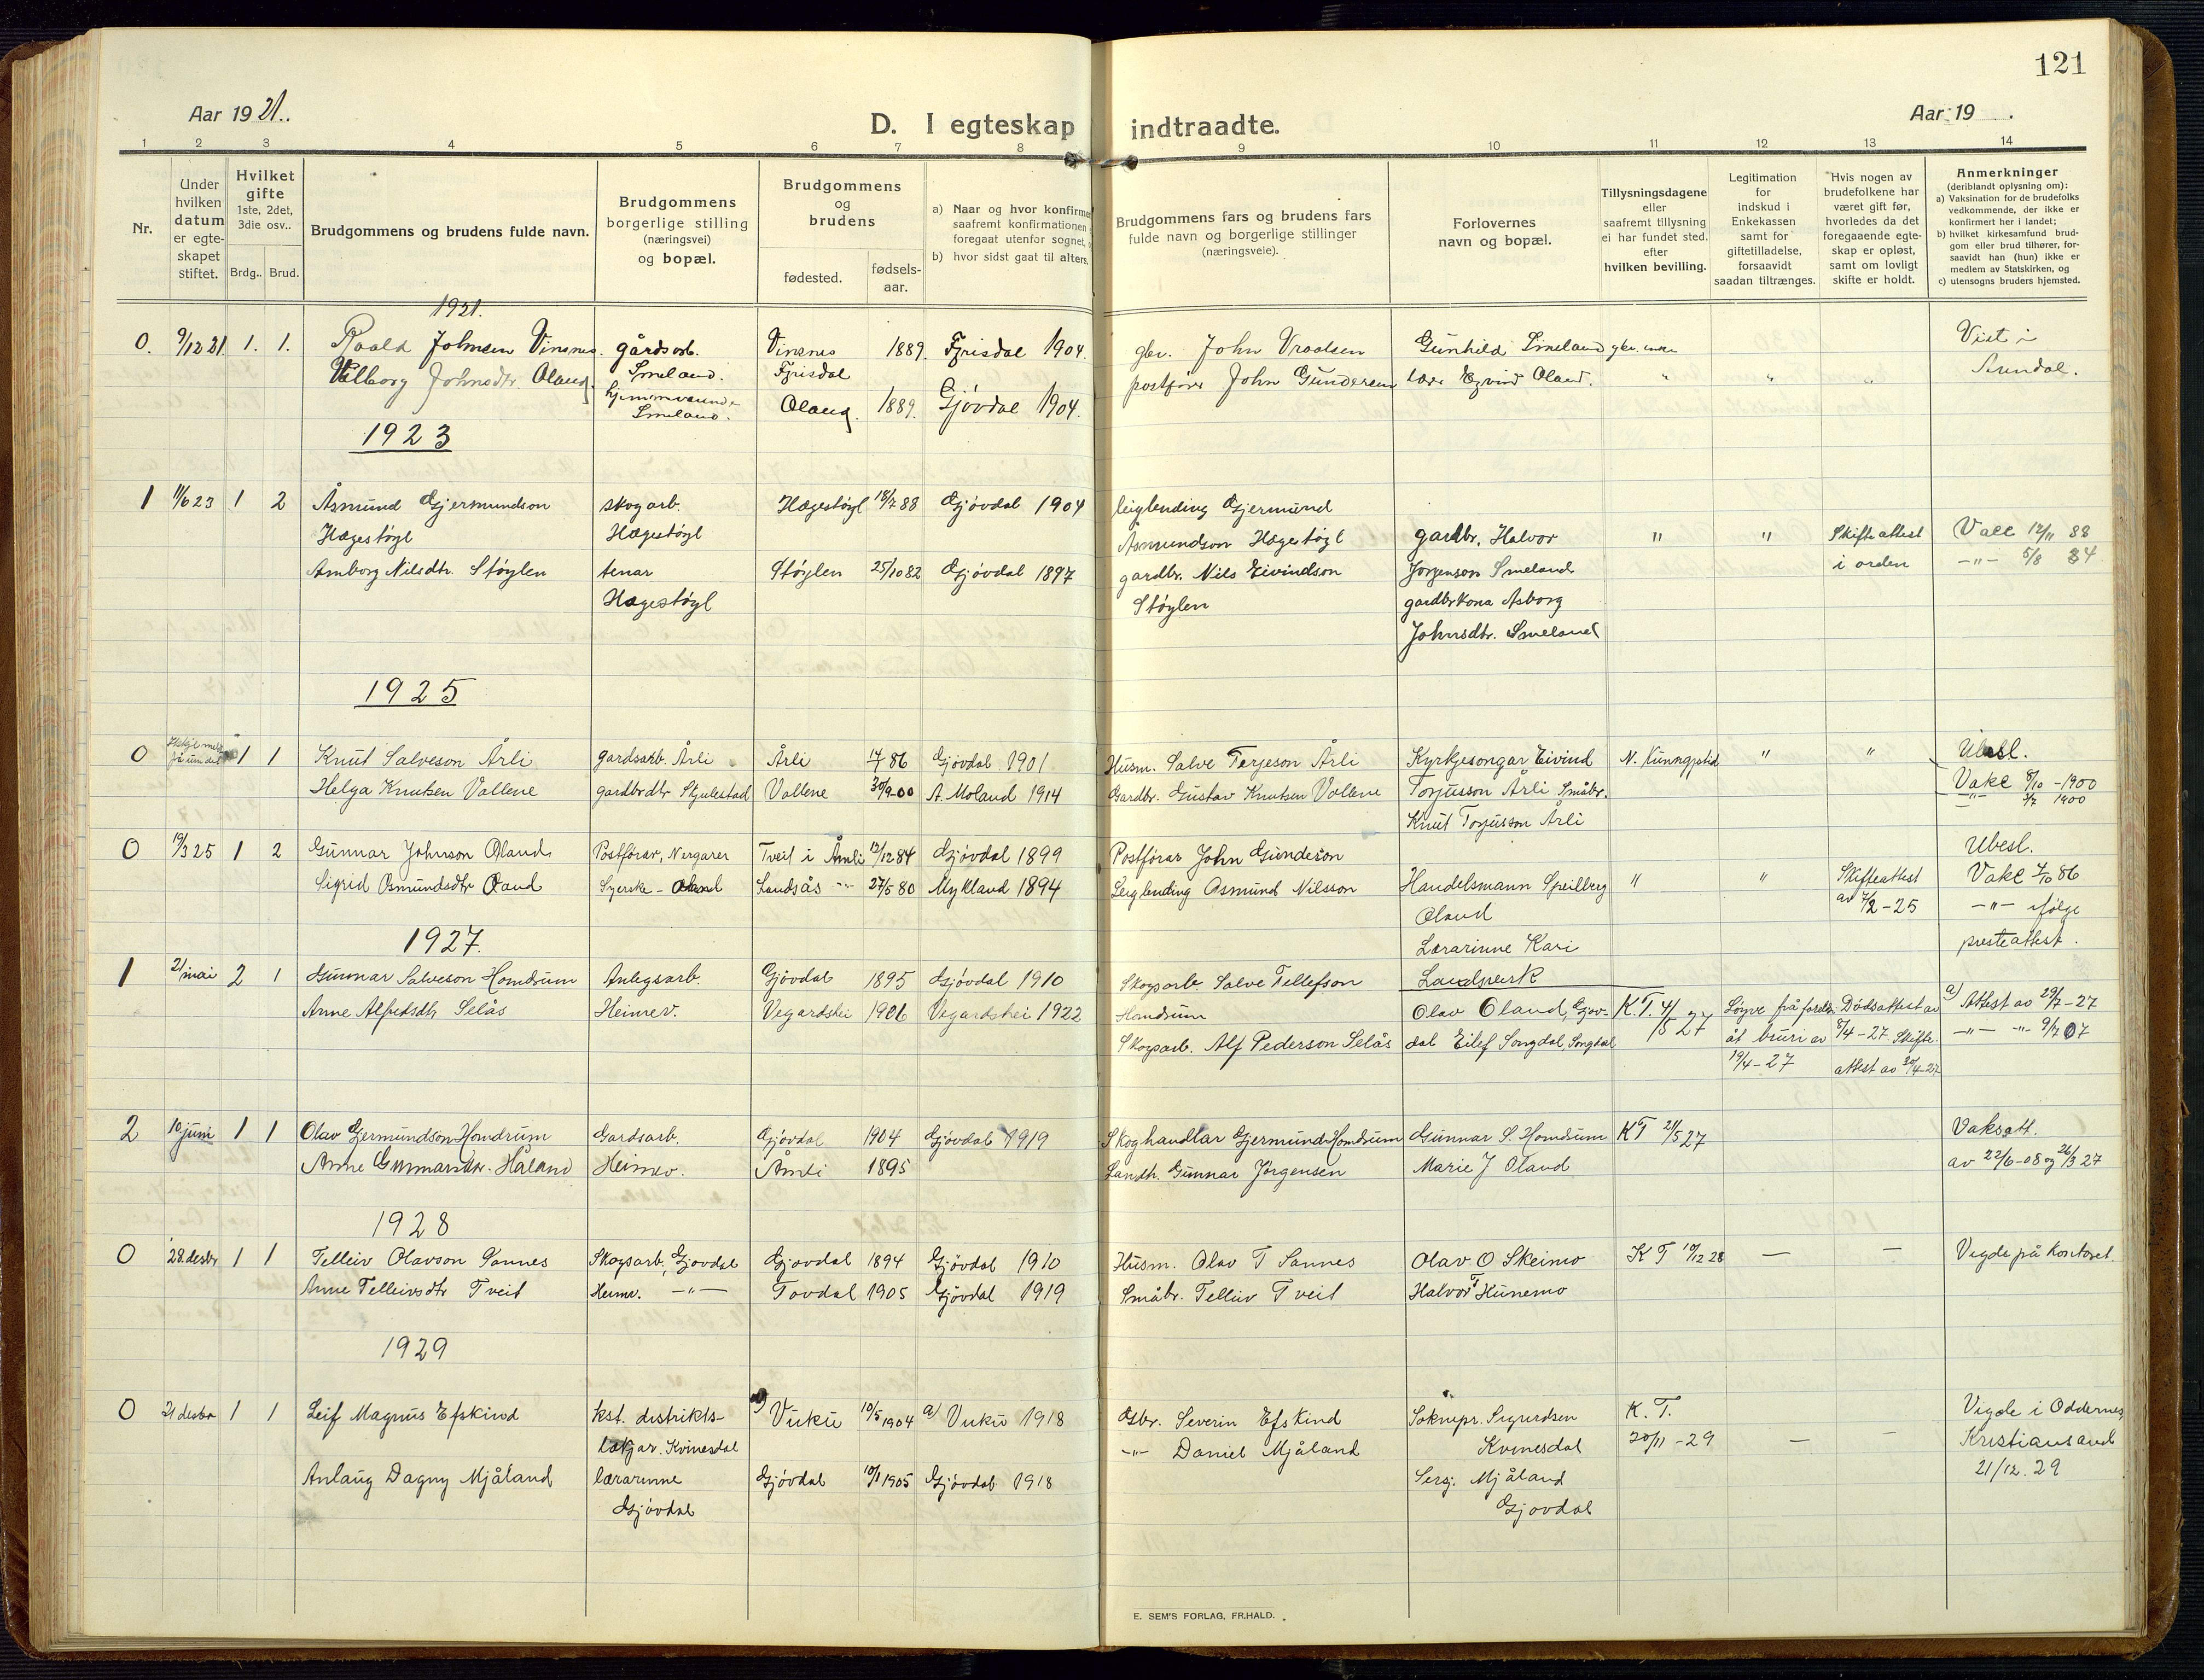 121
Aar 1921.
D. I egteskap indtraadte.
Aar 19 .
1 2 3 4 5 6 7 8 9 10 11 12 13 14
Nr.
Under hvilken datum er egte- skapet stiftet.
Hvilket gifte 1ste, 2det, 3die osv..
Brdg.. Brud.
Brudgommens og brudens fulde navn.
Brudgommens borgerlige stilling (næringsvei) og bopæl.
Brudgommens og brudens
fødested.
fødsels- aar.
a) Naar og hvor konfirme
saafremt konfirmationen
foregaat utenfor sognet,
b) hvor sidst gaat til alters.
Brudgommens fars og brudens fars fulde navn og borgerlige stillinger (næringsveie).
Forlovernes navn og bopæl.
Tillysningsdagene eller saafremt tillysning ei har fundet sted, efter hvilken bevilling.
Legitimation for indskud i Enkekassen samt for giftetilladelse, forsaavidt saadan tiltrænges.
Hvis nogen av brudefolkene har været gift før, hvorledes da det foregaaende egte- skap er opløst, samt om lovligt skifte er holdt.
Anmerkninger
(deriblandt oplysning om):
a) Vaksination for de brudefolks vedkommende, der ikke er konfirmert her i landet;
b) hvilket kirkesamfund brud- gom eller brud tilhører, for- saavidt han (hun) ikke er medlem av Statskirken, og
c) utensogns bruders hjemsted.
1921.
0. 9/12 21. 1. 1. Roald Johnsen Vinsnes. gårdsarb. Vinsnes 1889. Fyrisdal 1904. gbr. John Vraalsen Gunhild Smeland Viet i
Valborg Johnsdtr. Oland. Smeland. Fyrisdal postfører John Gundersen Eyvind Oland. " " " Arendal.
Smeland. Oland. 1889. Gjövdal 1904.
1923
1 11/6 23 1 2 Åsmund Gjermundson skogarb. Hægestøyl 18/7 88 Gjövdal 1904 leiglending Gjermund
Hægestøyl Hægestøyl Åsmundson Hægestøyl gardbr. Halvor " " Skifteattest Vacc 12/11 88
Amborg Nilsdtr. Støylen tenar Støylen 25/10 82 Gjövdal 1897 gardbr. Nils Eivindson Jørgenson Smeland i orden -"- 5/8 84
Hægestøyl Støylen gardbrkona Asborg
Johnsdtr. Smeland
1925
0 1 1 Knut Salveson Årli gardsarb. Årli Årli 86 Gjövdal 1901 Husm. Salve Terjeson Årli Kyrkjesongar Eivind N. Kunngjstid " " Ubesl.
Helga Knutsen Vallene gardbrdtr Skjulestad Vallene 30/9 00 A. Moland 1914 Gardbr. Gustav Knutsen Vallene Torjusson Årli Småbr. Vakc 8/10 - 1900
Knut Torjusson Årli -"- 3/7 1900
0 19/3 25 1 2 Gunnar Johnson Oland Postförar, Nergarer Tveit i Åmli 12/12 84 Gjövdal 1899 Postförar John Gunderson Ubesl.
Sigrid Osmundsdtr Oland Syerske - Oland Landsås -"- 27/5 80 Mykland 1894 Leiglending Osmund Nilsson Handelsmann Speilberg " " Skifteattest Vakc 7/10 86
Oland av 7/2 - 25 -"- ifølge
Lærarinne Kari presteattest.
Landsverk
1927.
1 21 mai 2 1 Gunnar Salveson Homdrum Anlegsarb. Gjövdal 1895 Gjövdal 1910 Skogsarb Salve Tellefson
Anne Alfredsdtr Selås Heimev. Vegardshei 1906 Vegardshei 1922 Homdrum Olav Oland, Gjøv- K.T. 4/5 27 Löyve frå foreldr Dødsattest av a) Attest av 29/7 - 27
Skogsarb. Alf Pederson Selås dal Eilef Songdal, Songdal åt bruri av 8/4 - 27. Skifte- -"- -"- 9/12 07
19/4 - 27 attest av 30/4 - 27
2 10 juni 1 1 Olav Gjermundson Homdrum Gardsarb. Gjövdal 1904 Gjövdal 1919 Skoghandlar Gjermund Homdrum Gunnar S. Homdrum KT 21/5 27 Vaksatt.
Anne Gunnarsdtr. Håland Heimev. Åmli 1895 Landh. Gunnar Jörgensen Marie J Oland av 22/6 - 08 og 26/3 27
1928
0 28. desbr 1 1 Telleiv Olavson Sannes Skogsarb., Gjövdal Gjövdal 1894 Gjövdal 1910 Husm. Olav T Sannes Olav O Skeimo K T 10/12 28 — — Vigde på kontoret.
Anne Telleivsdtr Tveit Heimv. -"- Tovdal 1905 Gjövdal 1919 Småbr. Telleiv Tveit Halvor T Hunemo
1929
0 21 desbr 1 1 Leif Magnus Efskind kst. distrikts- a) Vuku 10/5 1904 a) Vuku 1918 Gbr. Severin Efskind Soknepr. Sigurdsen K. T. Vigde i Oddernes
lækjar. Kvinesdal -"- Daniel Mjåland Kvinesdal 30/11 - 29 — — Kristiansand
Anlaug Dagny Mjåland lærarinne Gjövdal 10/1 1905 Gjövdal 1918 Sersj. Mjåland 21/12. 29
Gjövdal Gjövdal
E. SEM'S FORLAG, FR.HALD.